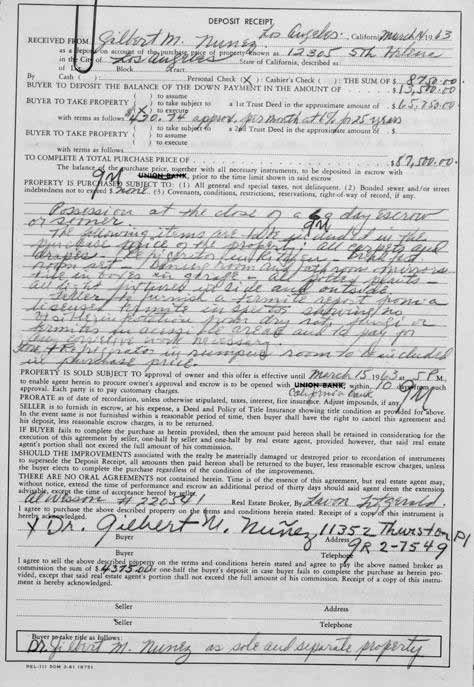 DEPOSIT RECEIPT
Los Angeles, California, March 14 1963
RECEIVED FROM Gilbert M. Nunez
as a deposit on account of the purchase price of property known as 12305 5th Helena
in the City of Los Angeles State of California, described as:
of Lot Block Tract
By Cash ( ) Personal Check (X) : Cashier's Check ( ) THE SUM OF $ 8750.00
BUYER TO DEPOSIT THE BALANCE OF THE DOWN PAYMENT IN THE AMOUNT OF $
( ) to assume
BUYER TO TAKE PROPERTY (X) to take subject to a 1st Trust Deed in the approximate amount of $ 65,750.00
( ) to execute
with terms as follows: $430.74 approx. per month at 6% 25 years
( ) to assume
BUYER TO TAKE PROPERTY ( ) to take subject to a 2nd Trust Deed in the approximate amount of $
( ) to execute
with terms as follows:
TO COMPLETE A TOTAL PURCHASE PRICE OF $ 87,500.00
The balance of the purchase price, together with all necessary instruments, to be deposited in escrow with
UNION BANK, prior to the time limit shown in said escrow
PROPERTY IS PURCHASED SUBJECT TO: (1) All general and special taxes, not delinquent. (2) Bonded sewer and/or street
indebtedness not to exceed $ None (3) Covenants, conditions, restrictions, reservations, right-of-record, if any.
Possession at the close of a 60 day escrow
or sooner.
The following items are to be included in the
purchase price of the property: all carpets and
drapes - refrigerator in kitchen - breakfast
room set - dining room and bathroom mirrors
all light fixtures inside and outside
Seller to furnish a termite report from a
licensed termite inspector showing no
visible infestation
termites in accessible areas and to pay for
any corrective work necessary.
refrigerator in rumpus room to be included
in purchase price.
PROPERTY IS SOLD SUBJECT TO approval of owner and this offer is effective until March 15 1963 at 5 P M.,
to enable agent to procure owner's approval and escrow is to be opened with UNION BANK, within 10 days from such
California Bank
approval. Each party is to pay customary charges.
PRORATE as of date of recordation, unless otherwise stipulated, taxes, interest, fire insurance. Adjust impounds, if any.
SELLER is to furnish in escrow, at his expense, a Deed and Policy of Title Insurance showing title condition as provided for above.
In the event same is not furnished within a reasonable period of time, then buyer shall have the right to cancel this agreement and
his deposit, less reasonable escrow charges, is to be returned.
IF BUYER fails to complete the purchase, then the amount paid hereon shall be retained in consideration for the
execution of this agreement by seller, one-half by seller and one-half by real estate agent, provided however, that said real estate
agent's portion shall not exceed the full amount of his commission.
SHOULD THE IMPROVEMENTS associated with the realty be materially damaged or destroyed prior to recordation of instruments
to supersede the Deposit Receipt, all amounts then paid hereon shall be returned to the buyer, less reasonable escrow charges, unless
the buyer elects to complete the purchase regardless of the existing condition of the improvements.
THERE ARE NO ORAL AGREEMENTS not contained herein. Time is of the essence of this agreement, but real estate agent may,
without notice, extend the time of performance and escrow an additional period of thirty days should said agent deem the extension
advisable, except the time of acceptance hereof by seller.
Real Estate Broker, By Lavon Fitzgerald
I agree to purchase the above described property on the terms and conditions herein stated. Receipt of a copy of this instrument is
hereby acknowledged.
X Dr. Gilbert M. Nuñez 11352 Thurston Pl
Buyer Address
GR 2-7549
Buyer Telephone
I agree to sell the above described property on the terms and conditions herein stated and agree to pay the above named broker as
commission the sum of $ 4375.00 one-half the buyer's deposit in case buyer fails to complete the purchase as herein pro-
vided, except that said real estate agent's portion shall not exceed the full amount of his commission. Receipt of a copy of this instru-
ment is hereby acknowledged.
Seller Address
Seller Telephone
Buyer to take title as follows:
Dr. Gilbert M. Nunez as sole and separate property